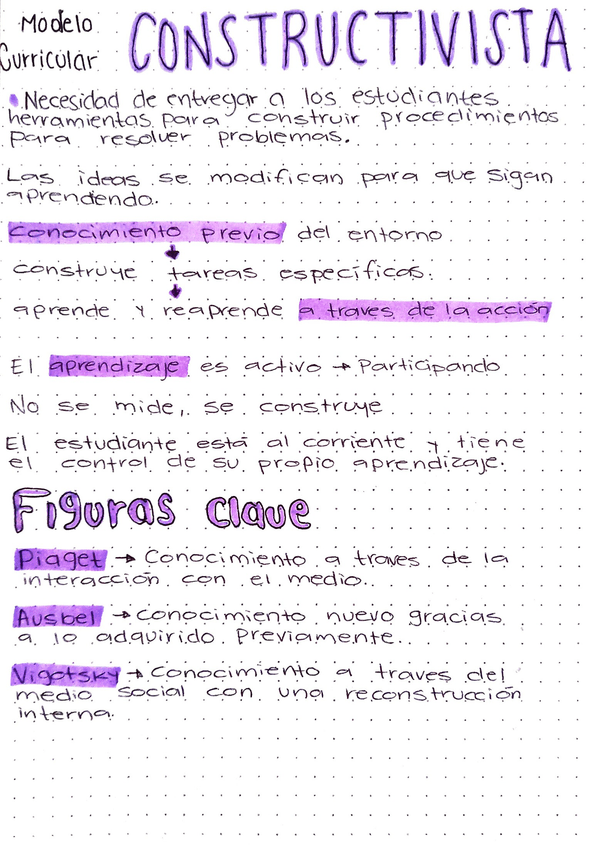 Modelo
Curricular
CONSTRUCTIVISTA
• Necesidad de entregar a los estudiantes
herramientas para construir procedimientos
para resolver problemas.
Las ideas se modifican para que sigan
aprendendo.
Conocimiento previo del entorno
construye tareas específicas.
aprende y reaprende a traves de la acción
El aprendizaje es activo → Participando
No se mide, se construye
El estudiante está al corriente y tiene
el control de su propio aprendizaje.
Figuras clave
Piaget → Conocimiento a traves de la
interacción con el medio.
Ausbel → Conocimiento nuevo gracias
a lo adquirido previamente.
Vigotsky → Conocimiento a traves del
medio social con una reconstrucción
interna.